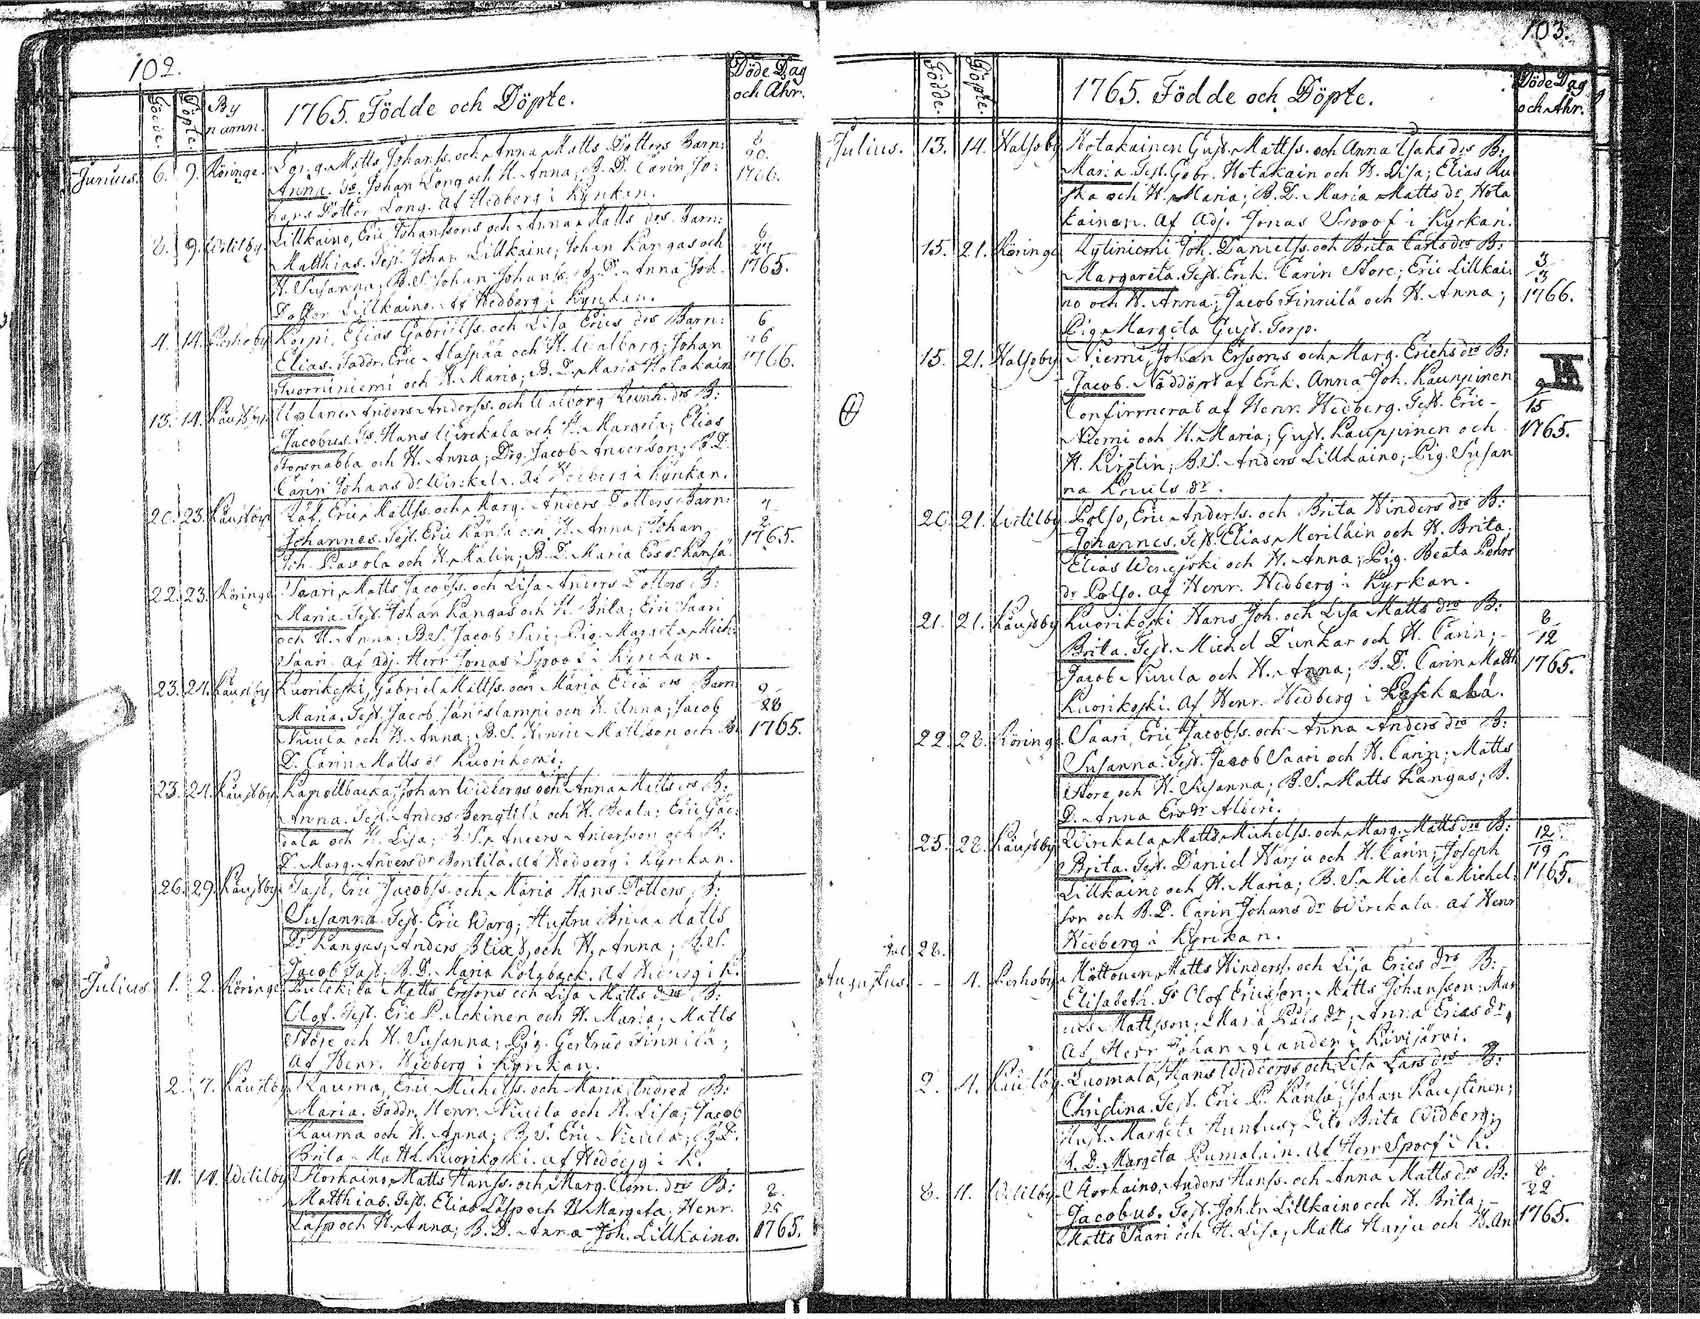 102.
Födde. Döpte. By namn. 1765. Födde och Döpte. Döde Dag och Åhr.
Junius. 6. 9. Köringe. Long, Matts Johanss. och Anna Matts Dotters Barn: 8
Anna. Ts. Johan Long och H. Anna; B. D. Carin Jo: 20. 1766.
hans Dotter Long. Af Hedberg i Kyrkan.
8. 9. Wetilby. Lillkaino, Eric Johanssons och Anna Matts drs Barn: 6
Matthias. Test. Johan Lillkaino; Johan Kangas och 27
H. Susanna; B. S. Johan Johanss. B. D. Anna Joh. 1765.
Dotter Lillkaino. Af Hedberg i Kyrkan.
4. 14. Perhoby Korpi, Elias Gabrielss. och Lisa Erics drs Barn: 6
Elias. Faddr. Eric Alaspää och H. Walborg; Johan 16
Tuorriniemi och H. Maria; B. D. Maria Hotakain 1766.
13. 14. Kaustby. Anders Anderss. och Walborg drs B:
Jacobus. Ts. Hans Wirckala och H. Margeta; Elias
Storsnabba och H. Anna; Drg. Jacob Anderson; B. D.
Carin Johans dr Wirckala. Af Hedberg i Kyrkan.
20. 23. Kaustby. Räf, Eric Mattss. och Marg. Anders Dotters Barn: 7
Johannes. Test. Eric Känsä och H. Anna; Johan 2
Joh. Passola och H. Malin; B. D. Maria Känsä. 1765.
22. 23. Köringe. Saari, Matts Jacobss. och Lisa Anders Dotters B:
Maria. Test. Johan Kangas och H. Brita; Eric Saari
och H. Anna; B. S. Jacob Sari; Pig. Margeta Mich:
Saari. Af Adj. Herr Jonas Spoof i Kyrkan.
23. 24. Kaustby. Kuorikoski, Gabriel Mattss. och Maria drs Barn: 9
Maria. Test. Jacob Jäneslampi och H. Anna; Jacob 28
Niuula och H. Anna; B. S. Henric Mattsson och B. 1765.
D. Carin Matts dr Kuorikoski.
23. 24. Kaustby. Johan Widbergs och Anna Matts drs B:
Anna. Test. Anders Bengtila och H. Beata; Eric
och H. Lisa; B. S. Anders Andersson och B.
D. Marg. Anders dr Pentila. Af Hedberg i Kyrkan.
26. 29. Kaustby. Tast, Eric Jacobss. och Maria Hans Dotters B:
Susanna. Test. Eric Warg; Hustru Brita Matts
Dr Kangas; Anders Slixt, och H. Anna; B. S.
Jacob Tast. B. D. Maria Kolaback. Af Hedberg i K.
Julius 1. 2. Köringe. Matts Ersons och Lisa Matts drs B:
Olof. Test. Eric Pelckinen och H. Maria; Matts
Störe och H. Susanna; Pig. Gertrud Finnilä;
Af Henr. Hedberg i Kyrkan.
2. 7. Kaustby. Kauma, Eric Michelss. och Maria Ingred B:
Maria. Faddr. Henr. Niuila och H. Lisa; Jacob
Kauma och H. Anna; B. S. Eric Niuula; B. D.
Brita Matth. Kuorikoski. Af Hedberg i K.
11. 14. Wetilby Storkaino, Matts Hanss. och Marg. Clem. drs B: 8.
Matthias. Test. Elias Läsp och H. Margeta; Henr. 25
Läsp och H. Anna; B. D. Anna Joh. Lillkaino. 1765.
103.
Födde. Döpte. 1765. Födde och Döpte. Döde Dag och Åhr.
Julius. 13. 14. Halsoby Hotakainen Gust. Mattss. och Anna Isaks drs B:
Maria. Test. Gabr. Hotakain och H. Lisa; Elias Ru
ska och H. Maria; B. D. Maria Matts dr Hota
kainen. Af Adj. Jonas Spoof i Kyrkan.
15. 21. Köringe Kytiniemi Joh. Danielss. och Brita Carls drs B: 3
Margareta. Test. Erik. Carin Store; Eric Lillkai: 3
no och H. Anna; Jacob Finnilä och H. Anna; 1766.
Pig. Margeta Gust. Torp.
15. 21. Halsoby Niemi, Johan Erssons och Marg. Erichs drs B:
Jacob. Nöddöpt af Erik. Anna Joh. Kauppinen 9
Confirmerat af Henr. Hedberg. Test. Eric 15
Niemi och H. Maria; Gust. Kauppinen och 1765.
H. Kirstin; B. S. Anders Lillkaino; Pig. Susan
na Knuts dr.
20. 21. Wetilby. Polso, Eric Anderss. och Brita Hinders drs B:
Johannes. Test. Elias Meriläin och H. Brita;
Elias Wenejoki och H. Anna; Pig. Beata Pehrs
dr Polso. Af Henr. Hedberg i Kyrkan.
21. 21. Kaustby Kuorikoski Hans Joh. och Lisa Matts drs B: 8
Brita. Test. Michel Dunkar och H. Carin; 12
Jacob Niuula och H. Anna; B. D. Carin Matth 1765.
Kuorikoski. Af Henr. Hedberg i
22. 28. Köringe Saari, Eric Jacobss. och Anna Anders drs B:
Susanna. Test. Jacob Saari och H. Carin; Matts
Store och H. Susanna; B. S. Matts Kangas; B.
D. Anna Ers dr Alberi.
25. 28. Kaustby Wirckala, Matts Michelss. och Marg. Matts drs B: 12
Brita. Test. Daniel Harju och H. Carin; Joseph 19
Lillkaino och H. Maria; B. S. Michel Michel: 1765.
son och B. D. Carin Johans dr Wirckala. Af Henr
Hedberg i Kyrkan.
Jul 28.
Augustus. - - 4. Perhoby Möttönen, Matts Hinderss. och Lisa Erics drs B:
Elisabeth. Ts. Olof Ericsson; Matts Johansson; Mar
cus Mattsson; Maria Påls dr; Anna Erias dr.
Af Herr Johan Mander i Kivijärvi.
2. 4. Kaustby Luomala, Hans Widbergs och Lisa Lars drs B:
Christina. Test. Eric P. Känsä; Johan Kaustinen;
Hust. Margeta Huntus; Dito Brita Widberg;
B. D. Margeta Pumalain. Af Herr Spoof i K.
8. 11. Wetilby Storkaino, Anders Hanss. och Anna Matts drs B: 8.
Jacobus. Test. Joh:n Lillkaino och H. Brita; 22
Matts Saari och H. Lisa; Matts Harju och H. An 1765.